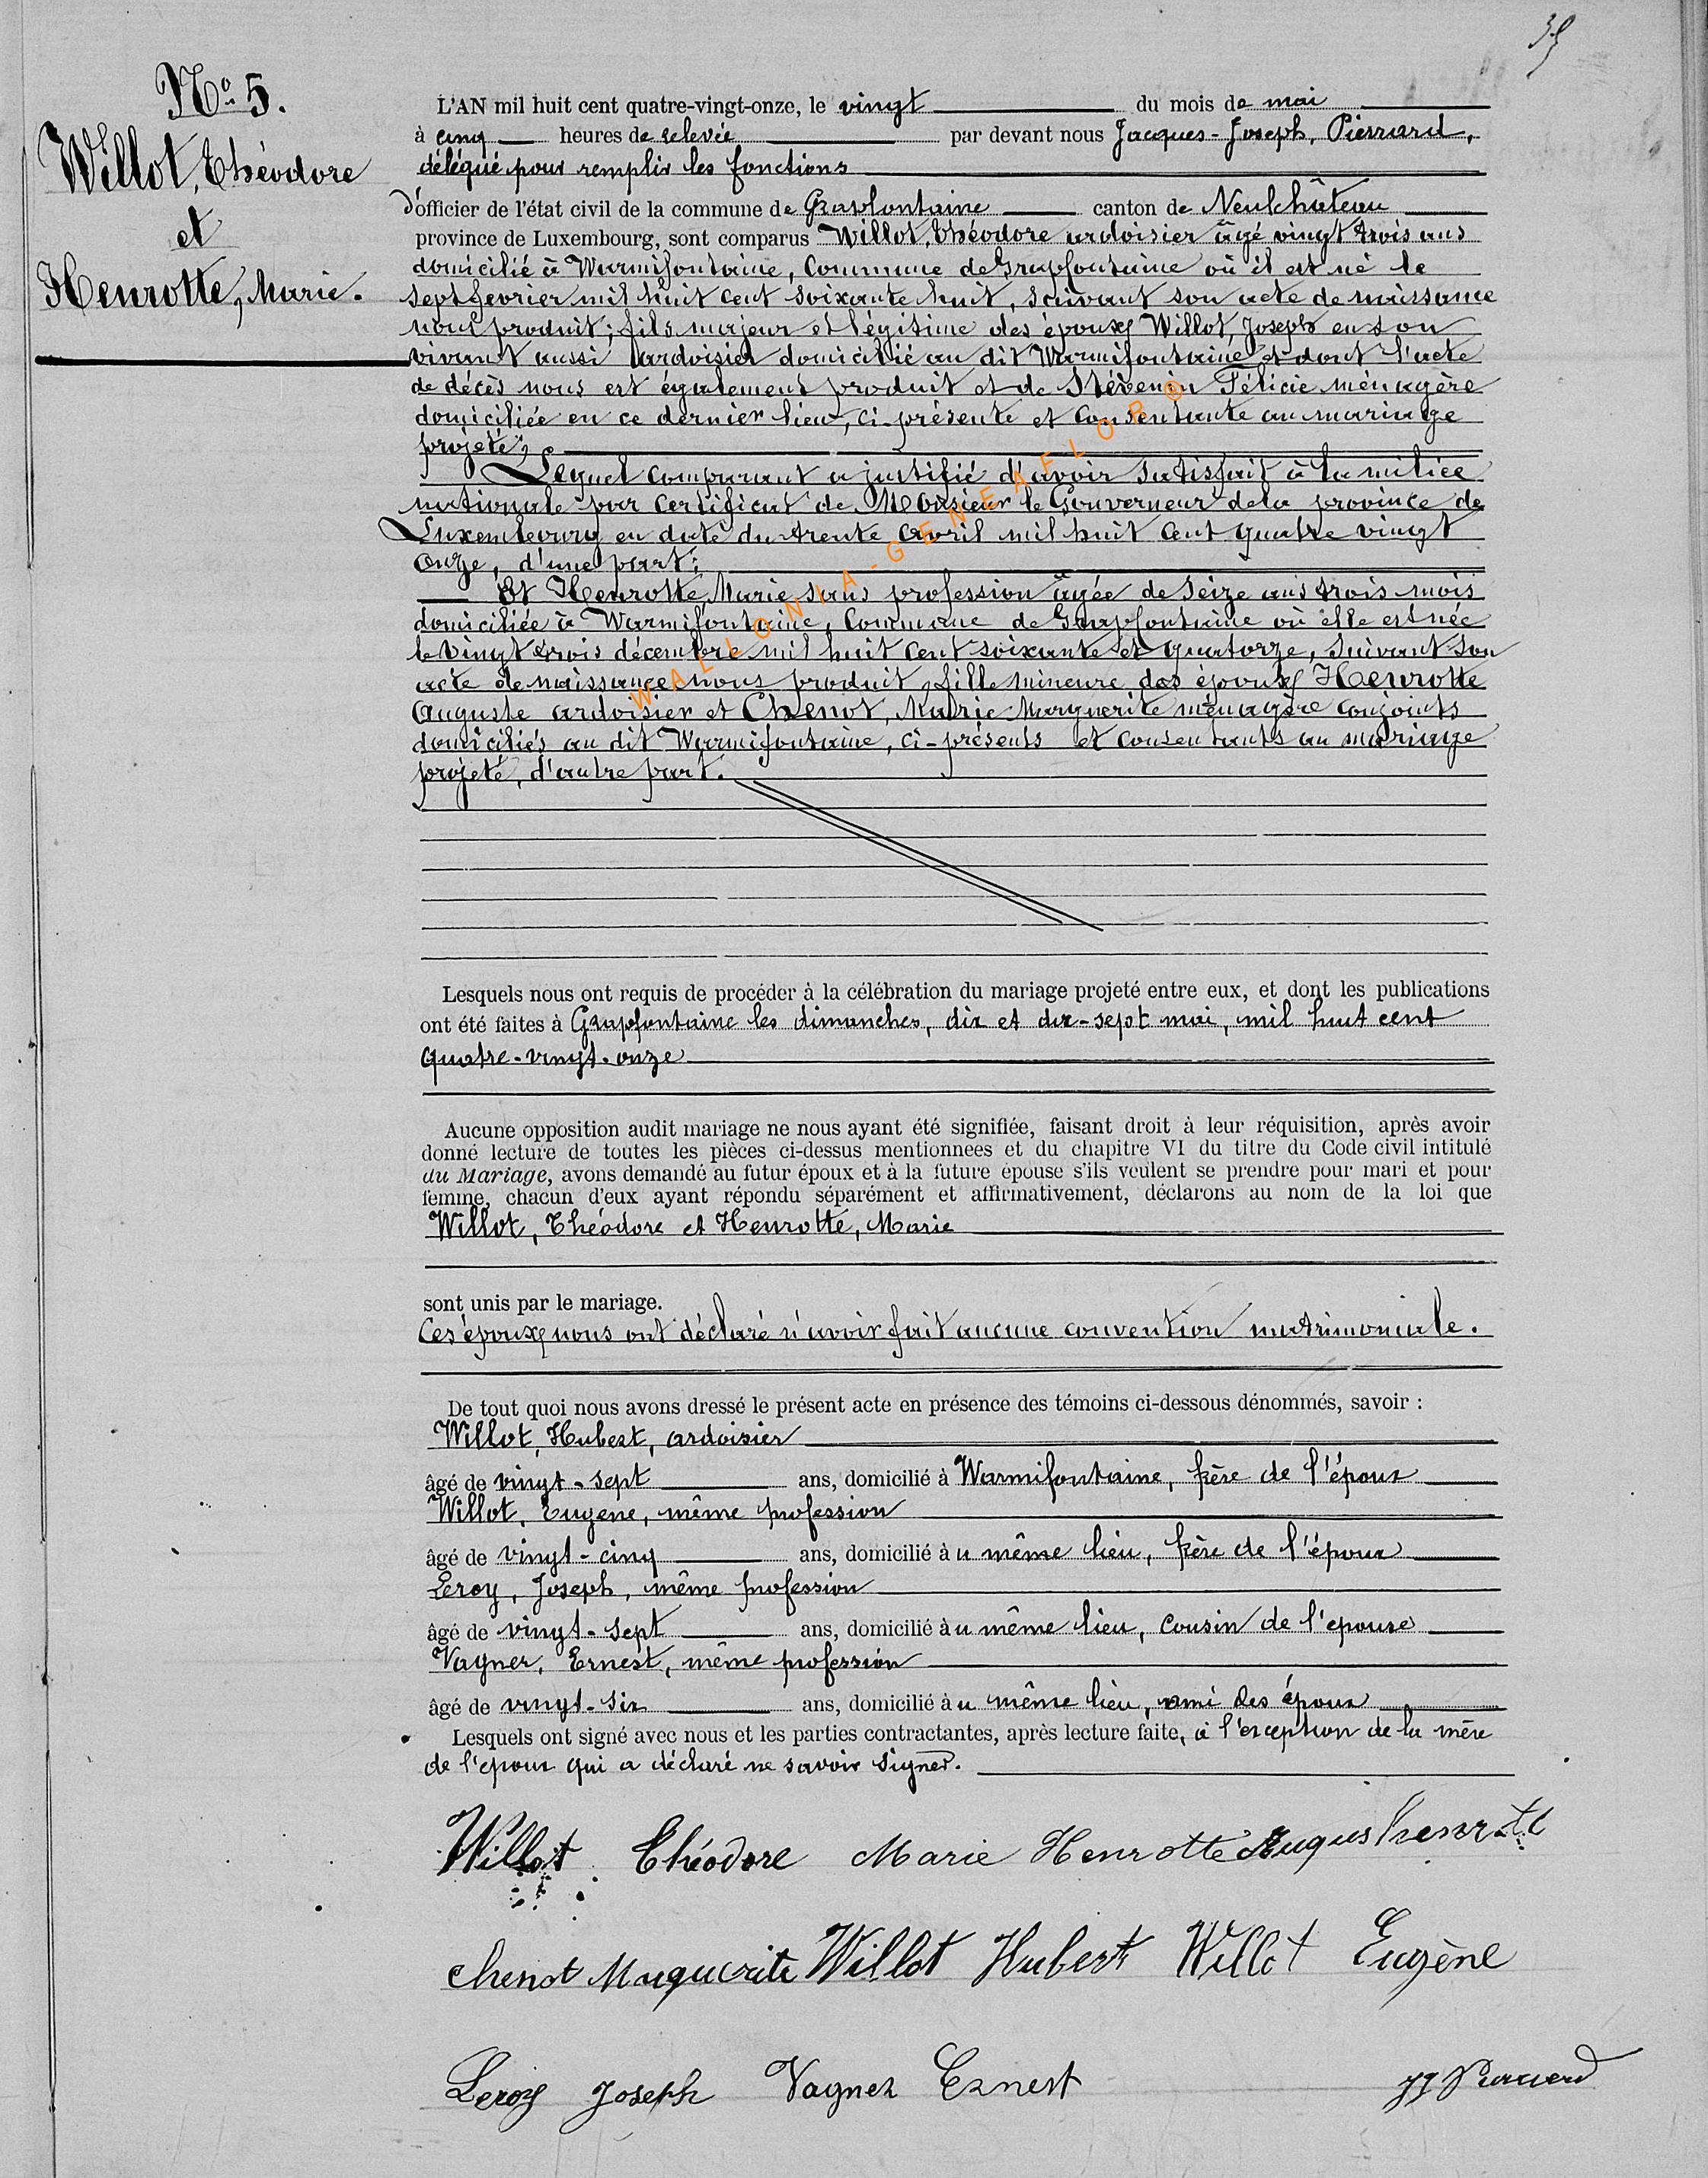 35
No. 5.
Willot, Théodore
et
Henrotte, Marie.
L'AN mil huit cent quatre-vingt-onze, le vingt du mois de mai
à cinq heures de relevée par devant nous Jacques-Joseph, Pierrard,
délégué pour remplir les fonctions
d'officier de l'état civil de la commune de Grapfontaine canton de Neufchâteau
province de Luxembourg, sont comparus Willot, Théodore ardoisier âgé vingt trois ans
domicilié à Warmifontaine, Commune de Grapfontaine où il est né le
sept fevrier mil huit cent soixante huit, suivant son acte de naissance
nous produit; fils majeur et légitime des époux Willot, Joseph en son
vivant aussi ardoisier domicilié au dit Warmifontaine et dont l'acte
de décès nous est également produit et de Stévenin Félicie ménagère
domiciliée en ce dernier lieu, ci-présente et consentante au mariage
projeté,
Lequel comparant a justifié d'avoir satisfait à la milice
nationale par certificat de Monsieur le Gouverneur de la province de
Luxembourg en date du trente avril mil huit cent quatre vingt
onze, d'une part;
Et Henrotte Marie sans profession âgée de seize ans trois mois
domiciliée à Warmifontaine, Commune de Grapfontaine où elle est née
le vingt trois décembre mil huit cent soixante et quatorze, suivant son
acte de naissance nous produit, fille mineure des époux Henrotte
Auguste ardoisier et Chenot, Marie Marguerite ménagère conjoints
domiciliés au dit Warmifontaine, ci-présents et consentants au mariage
projeté, d'autre part.
WALLONIA-GENEAFLOR®
Lesquels nous ont requis de procéder à la célébration du mariage projeté entre eux, et dont les publications
ont été faites à Grapfontaine les dimanches, dix et dix-sept mai, mil huit cent
quatre-vingt-onze
Aucune opposition audit mariage ne nous ayant été signifiée, faisant droit à leur réquisition, après avoir
donné lecture de toutes les pièces ci-dessus mentionnees et du chapitre VI du titre du Code civil intitulé
du Mariage, avons demandé au futur époux et à la future épouse s'ils veulent se prendre pour mari et pour
femme, chacun d'eux ayant répondu séparément et affirmativement, déclarons au nom de la loi que
Willot, Théodore et Henrotte, Marie
sont unis par le mariage.
Ces époux nous ont déclaré n'avoir fait aucune convention matrimoniale.
De tout quoi nous avons dressé le présent acte en présence des témoins ci-dessous dénommés, savoir :
Willot, Hubert, ardoisier
âgé de vingt-sept ans, domicilié à Warmifontaine, frère de l'époux
Willot, Eugene, même profession
âgé de vingt-cinq ans, domicilié àu même lieu, frère de l'époux
Leroy, Joseph, même profession
âgé de vingt-sept ans, domicilié àu même lieu, cousin de l'epouse
Vagner, Ernest, même profession
âgé de vingt-six ans, domicilié àu même lieu, ami des époux
Lesquels ont signé avec nous et les parties contractantes, après lecture faite, à l'exception de la mère
de l'époux qui a déclaré ne savoir signer.
Willot Théodore Marie Henrotte August henrotte
chenot Marguerite Willot Hubert Willot Eugène
Leroy Joseph Vagner Ernest JJ Pierrard